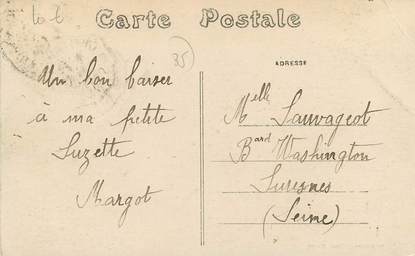 Carte Postale
35
ADRESSE
Un bon baiser
à ma petite
Suzette
Margot
Melle Sauvageot
Bard Washington
Suresnes
(Seine)